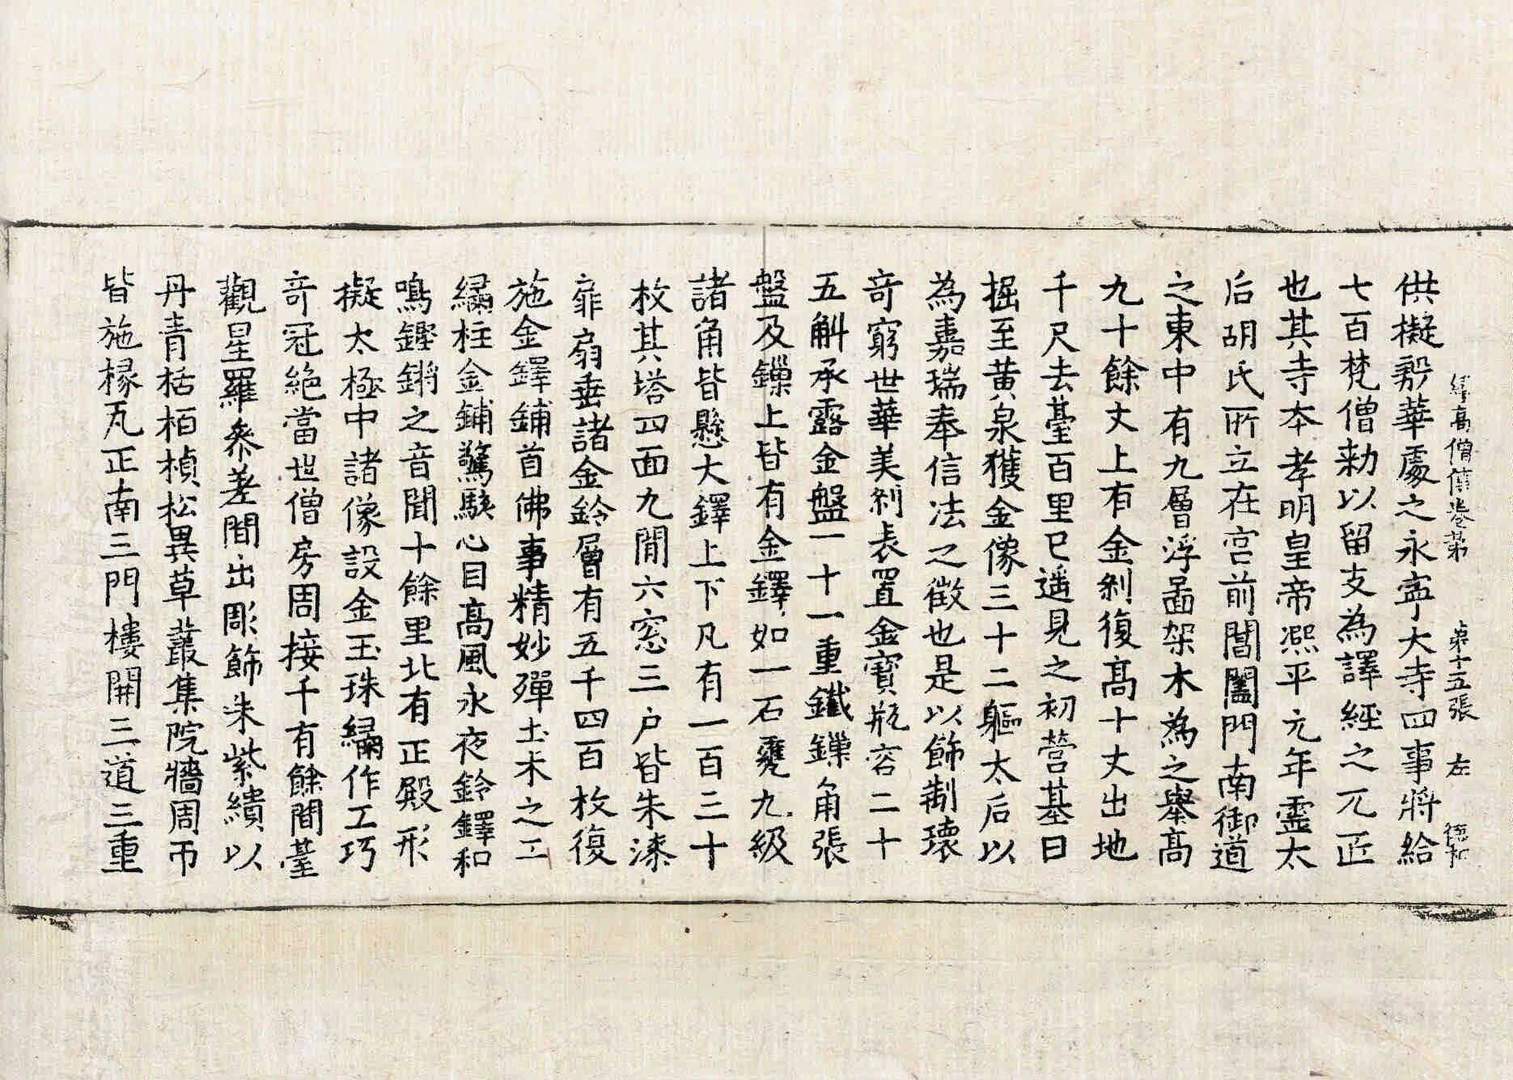 續高僧傳卷第　第十五張　左
供擬殷華處之永寧大寺四事將給
七百梵僧勑以留支為譯經之元匠
也其寺本孝明皇帝熈平元年靈太
后胡氏所立在宮前閶闔門南御道
之東中有九層浮啚架木為之舉高
九十餘丈上有金剎復高十丈出地
千尺去臺百里已遥見之初營基日
掘至黃泉獲金像三十二軀太后以
為嘉瑞奉信法之徵也是以飾制瓌
奇窮世華美剎表置金寶瓶容二十
五斛承露金盤一十一重鐵鏁角張
盤及鏁上皆有金鐸如一石甕九級
諸角皆懸大鐸上下凡有一百三十
枚其塔四面九間六窓三户皆朱漆
扉扇垂諸金鈴層有五千四百枚復
施金鐸鋪首佛事精妙殫土木之工
繡柱金鋪驚駭心目高風永夜鈴鐸和
鳴鏗鏘之音聞十餘里北有正殿形
擬太極中諸像設金玉珠繡作工巧
奇冠絶當世僧房周接千有餘間臺
觀星羅參差間出彫飾朱紫繢以
丹青栝栢楨松異草叢集院牆周帀
皆施椽瓦正南三門樓開三道三重